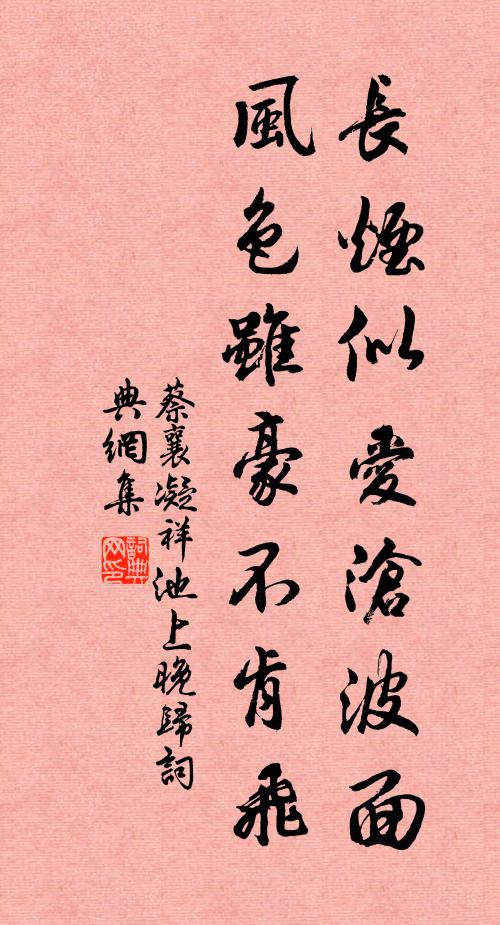 長煙似愛滄波面
風色雖豪不肯飛
蔡襄凝祥池上晚歸詞
典網集
詞典
网印